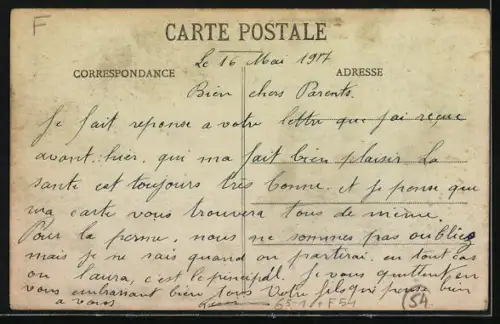 F
CARTE POSTALE
Le 16 Mai 1917
CORRESPONDANCE
ADRESSE
Bien chers Parents.
Je fait reponse a votre lettre que j'ai reçue
avant-hier, qui ma fait bien plaisir La
santé est toujours très bonne. et Je pense que
ma carte vous trouvera tous de même.
Pour la perme, nous ne sommes pas oubliés
mais je ne sais quand on partirai, en tout cas
on l'aura, c'est le principal. Je vous quittent en
vous embrassant bien tous Votre fils qui pense bien
a vous
F54
54